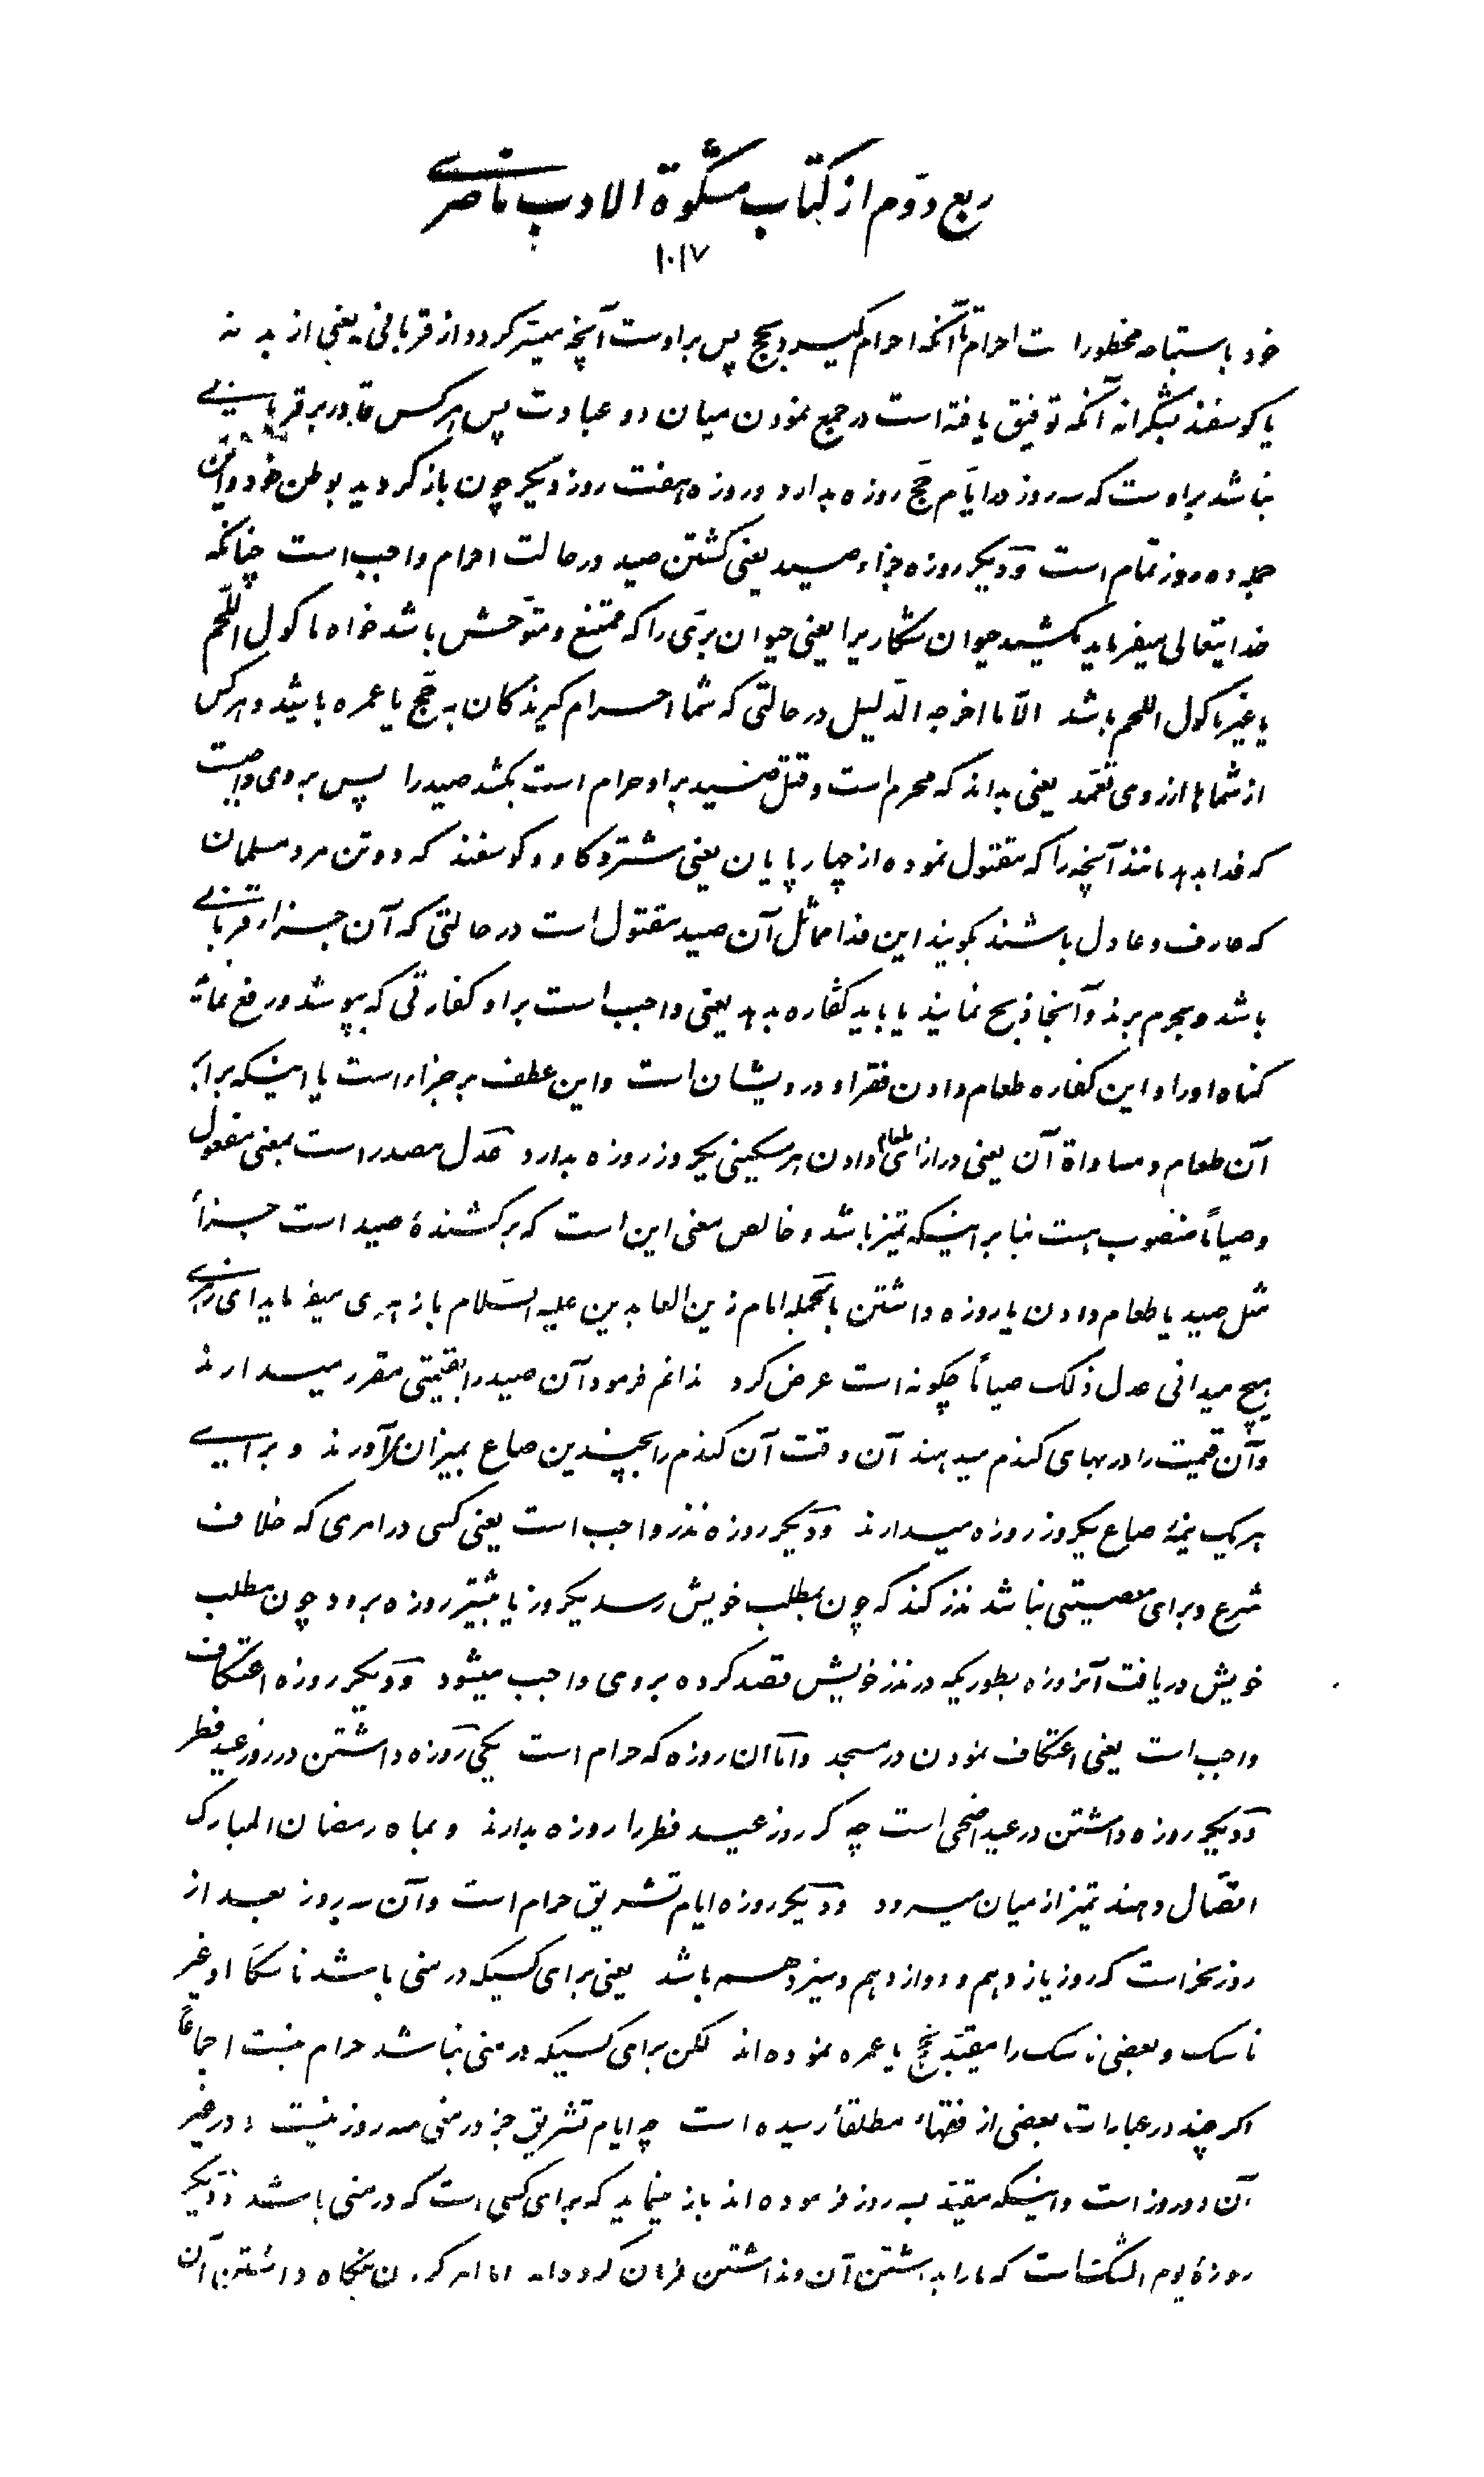 ربع دوّم از کتاب مشکوة الادب ناصری
۱۰۱۷
خود باستباحه محظورات احرام تا آنکه احرام گیرد بحج پس بر اوست آنچه میسّر کردد از قربانی یعنی از بدنه
یا کوسفند بشکرانه آنکه توفیق یافته است در جمع نمودن میان دو عبادت پس هر کس قادر بر قربانی
نباشد بر اوست که سه روز در ایّام حجّ روزه بدارد و روزه هفت روز دیکر چون باز کردید بوطن خود و این
جمله ده روز تمام است وَدیکر روزه جزاء صید یعنی کشتن صید در حالت احرام واجب است چنانکه
خدایتعالی میفرماید نکشید حیوان شکاریرا یعنی حیوان برّی را که ممتنع و متوّحش باشد خواه ماکول اللّحم
یا غیر ماکول اللحم باشد الّا ما اخرجه الدّلیل در حالتی که شما احرام کیرندکان به حّج یا عمره باشید و هر کس
از شماها از روی تعّمد یعنی بداند که محرم است و قتل صید بر او حرام است بکشد صید را پس بر وی واجبست
که فدا بدهد مانند آنچه را که مقتول نموده از چهار پایان یعنی شتر و کاو و کوسفند که دو تن مرد مسلمان
که عارف و عادل باشند بکویند این فدا مماثل آن صید مقتول است در حالتی که آن جزاء قربانی
باشد و بحرم برند و آنجا ذبح نمایند یا باید کفّاره بدهد یعنی واجب است بر او کفارتی که بپوشد و رفع نماید
کناه او را و این کفاره طعام دادن فقرا و درویشان است و این عطف بر جزاء است یا اینکه برابر
آن طعام و مساواة آن یعنی در ازای طعام دادن هر مسکینی یکروز روزه بدارد عَدل مصدر است بمعنی مفعول
و صیاماً منصوب هست بنا بر اینکه تمیز باشد و خالص معنی این است که بر کشندهٔ صید است جزأ
مثل صید یا طعام دادن یا روزه داشتن بالجمله امام زین العابدین علیه السّلام با زهری میفرماید ای زهری
هیچ میدانی عدل ذلک صیاماً چکونه است عرض کرد ندانم فرمود آن صید را بقیمتی مقرر میدارند
و آن قیمت را در بهای کندم میدهند آن وقت آن کندم را بچندین صاع بمیزان بر آورند و برای
هر یک نیمهٔ صاع یکروز روزه میدارند وَدیکر روزه نذر واجب است یعنی کسی در امری که خلاف
شرع و برای معصیتی نباشد نذر کند که چون بمطلب خویش رسد یکروز یا بیشتر روزه برود چون مطلب
خویش دریافت آنروزه بطوریکه در نذر خویش قصد کرده بر وی واجب میشود وَدیکر روزه اعتکاف
واجب است یعنی اعتکاف نمودن در مسجد وَامّا ان روزه که حرام است یکی روزه داشتن در روز عید فطر
وَدیکر روزه داشتن در عید اضحی است چه کر روز عید فطر را روزه بدارند و بماه رمضان المبارک
اتّصال دهند تمیز از میان میرود وَدیکر روزه ایام تشریق حرام است و آن سه روز بعد از
روز نحر است که روز یازدهم و دوازدهم و سیزدهم باشد یعنی برای کسیکه در منی باشد ناسکاً او غیر
ناسک و بعضی ناسک را مقیّد بحج یا عمره نموده‌اند لکن برای کسیکه در منی نباشد حرام نیست اجماعاً
اکر چند در عبارات بعضی از فقهاء مطلقاً رسیده است چه ایام تشریق جز در منی سه روز نیست و در غیر
آن دو روز است و اینکه مقیّد بسه روز فرموده‌اند باز مینماید که برای کسی است که در منی باشد وَدیکر
روزهٔ یوم الشّک است که ما را بداشتن آن و نداشتن فرمان کرده‌اند اما امر کردن هنکام داشتن آن